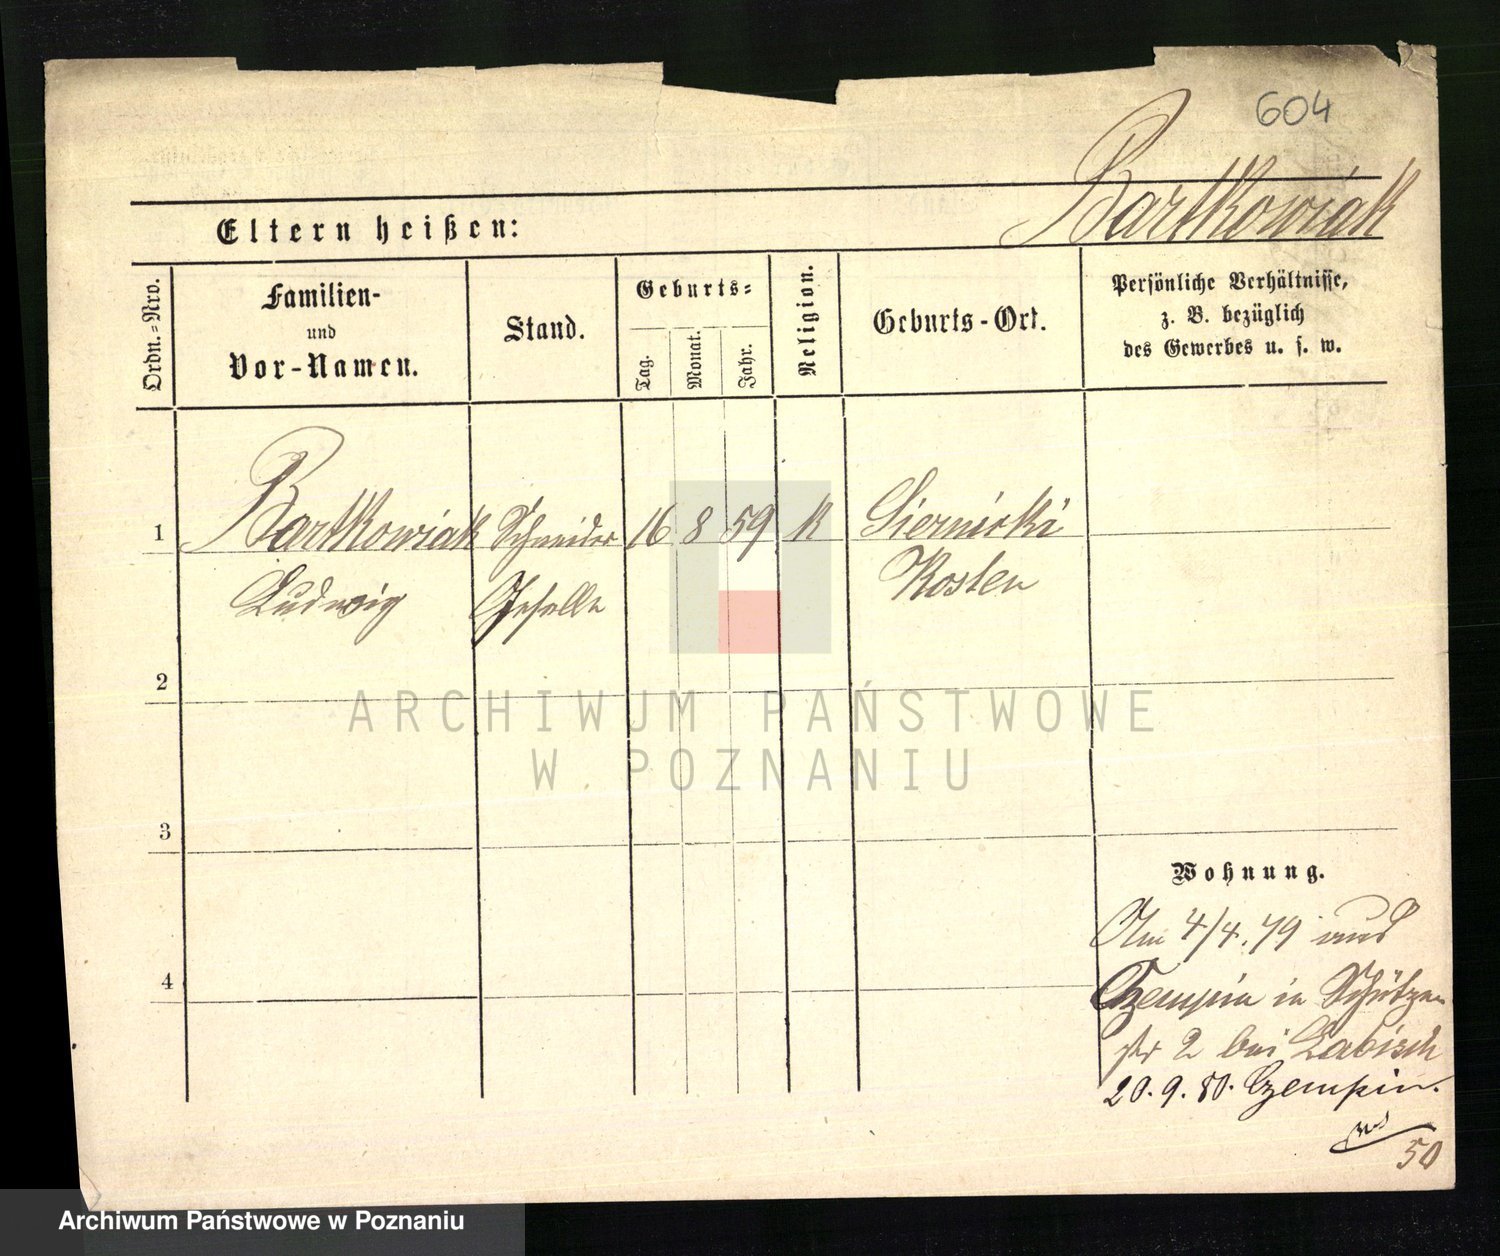 604
Bartkowiak
Eltern heißen:
Ordn.=Nro.
Familien-
und
Vor-Namen.
Stand.
Geburts=
Tag.
Monat.
Jahr.
Religion.
Geburts-Ort.
Persönliche Verhältnisse,
z. B. bezüglich
des Gewerbes u. s. w.
1
Bartkowiak Schneider 16 8 59 k Siernicki
Ludwig Geselle Kosten
2
ARCHIWUM PAŃSTWOWE
W POZNANIU
3
Wohnung.
Am 4/4. 79 aus
4
Czempin in Schützen
str 2 bei Labisch
20. 9. 80. Czempin.
50
Archiwum Państwowe w Poznaniu